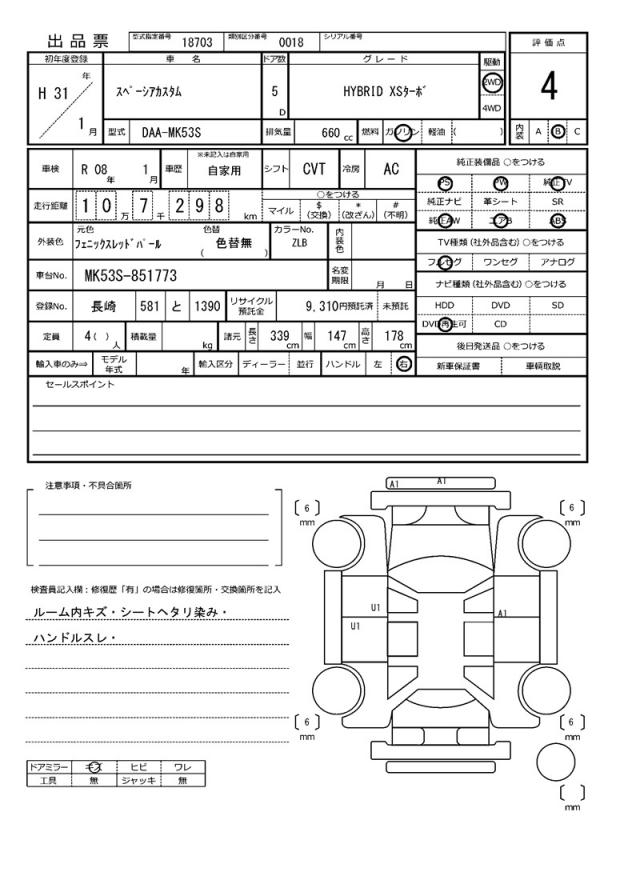 出品票 型式指定番号 18703 類別区分番号 0018 シリアル番号
評価点
4
内装 A B C
初年度登録 車名 ドア数 グレード 駆動
H 31 年 1 月
スペーシアカスタム 5 D HYBRID XSターボ 2WD
4WD
型式 DAA-MK53S 排気量 660 cc 燃料 ガソリン 軽油 ( )
車検 R 08 年 1 月 車歴 ※未記入は自家用 自家用 シフト CVT 冷房 AC
走行距離 1 0 万 7 千 2 9 8 km
○をつける
マイル $ (交換) * (改ざん) # (不明)
外装色 元色 フェニックスレッドパール 色替 ( 色替無 ) カラーNo. ZLB 内装色
車台No. MK53S-851773 名変期限 月 日
登録No. 長崎 581 と 1390 リサイクル預託金 9,310円預託済 未預託
定員 4( ) 人 積載量 kg 諸元 長さ 339 cm 幅 147 cm 高さ 178 cm
輸入車のみ⇒ モデル年式 年 輸入区分 ディーラー 並行 ハンドル 左 右
純正装備品 ○をつける
PS PW 純正TV
純正ナビ 革シート SR
純正AW エアB ABS
TV種類 (社外品含む) ○をつける
フルセグ ワンセグ アナログ
ナビ種類 (社外品含む) ○をつける
HDD DVD SD
DVD再生可 CD
後日発送品 ○をつける
新車保証書 車輌取説
セールスポイント
注意事項・不具合箇所
検査員記入欄：修復歴「有」の場合は修復箇所・交換箇所を記入
ルーム内キズ・シートヘタリ染み・
ハンドルスレ・
ドアミラー キズ ヒビ ワレ
工具 無 ジャッキ 無
A1 A1
6 mm
6 mm
U1
U1
A1
6 mm
6 mm
mm